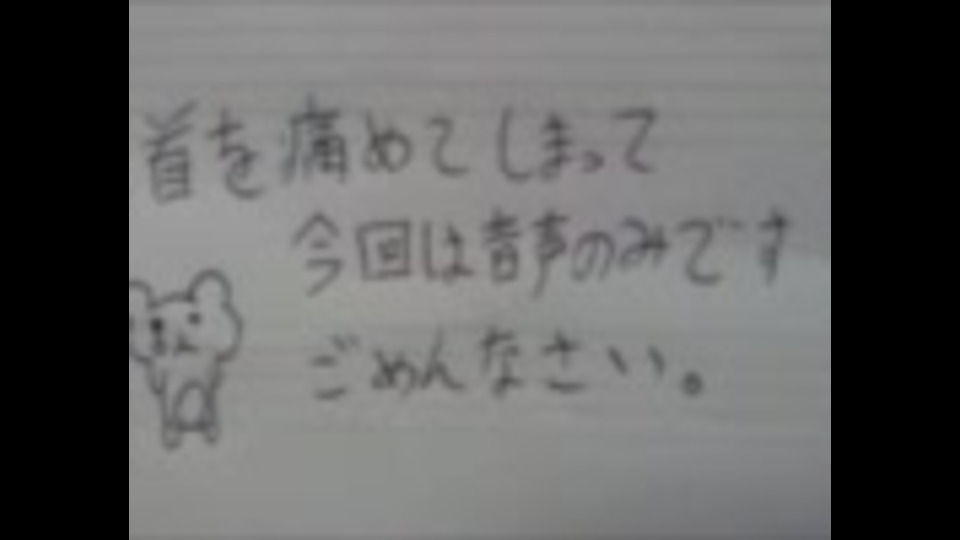 首を痛めてしまって
今回は音声のみです
ごめんなさい。